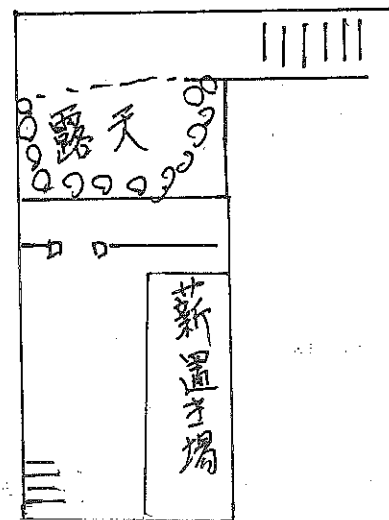 露天
薪置き場